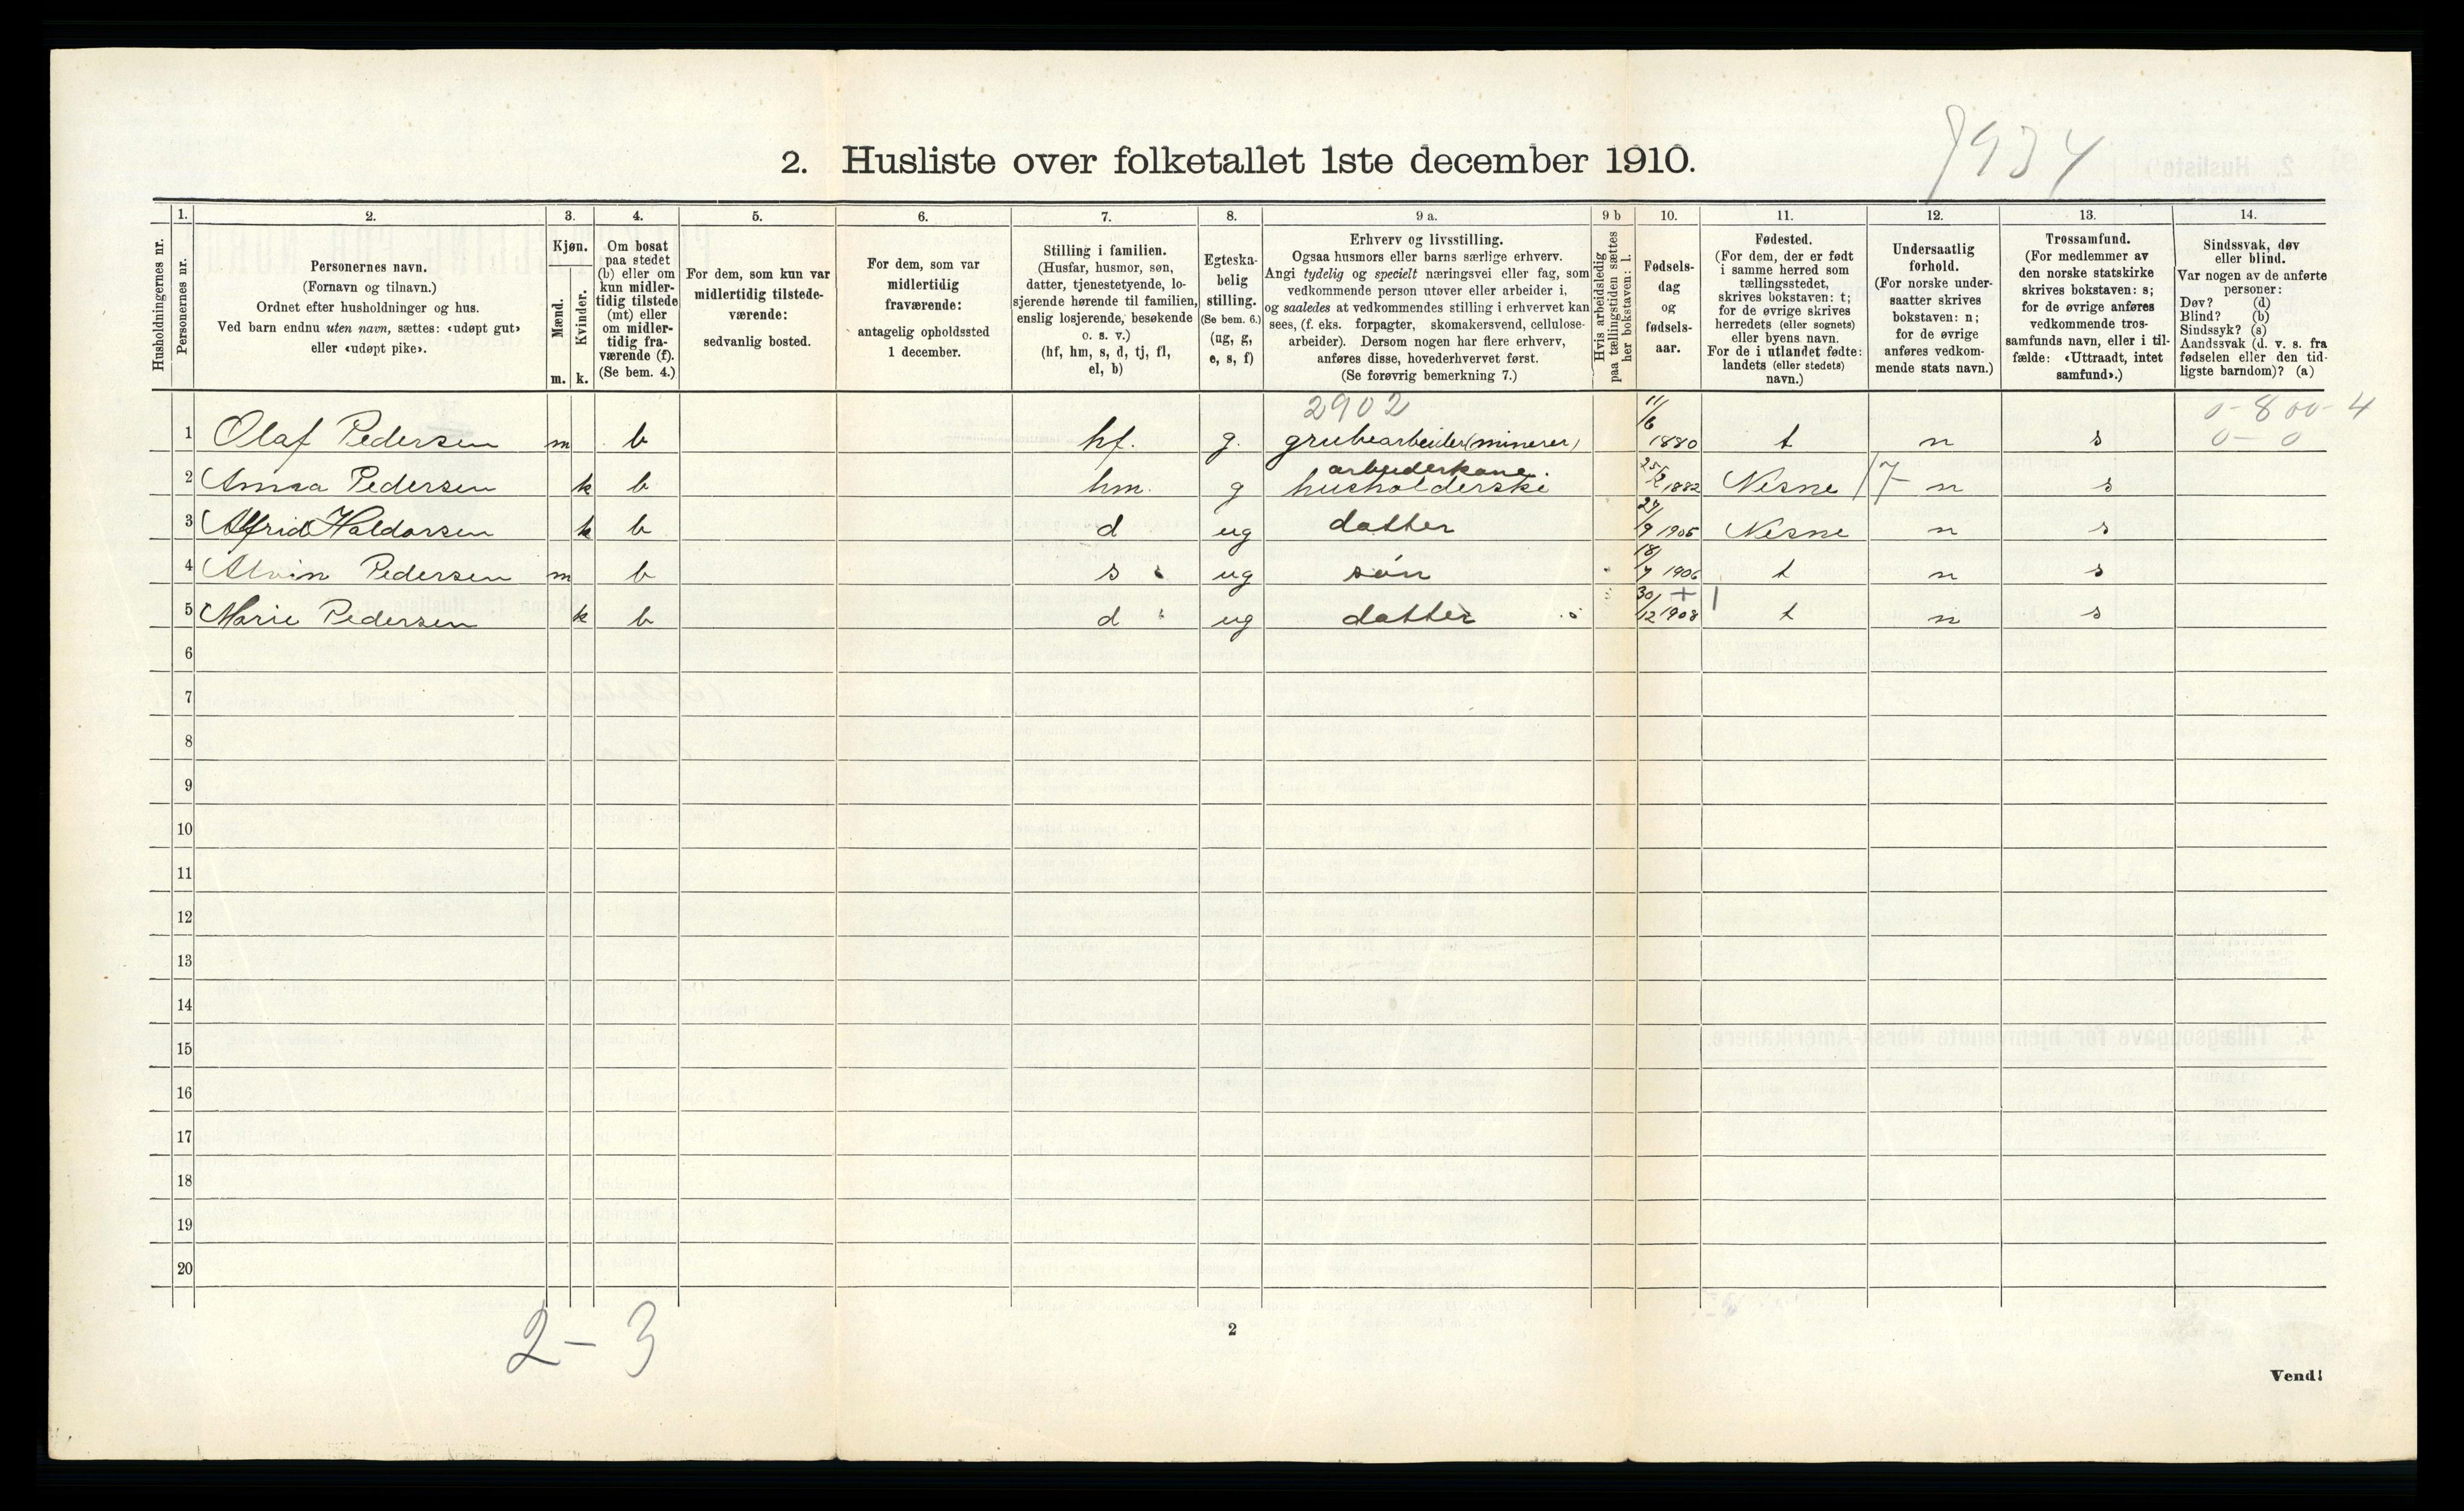 7934
2. Husliste over folketallet 1ste december 1910.
Husholdningernes nr.
1.
Personernes nr.
2.
Personernes navn.
(Fornavn og tilnavn.)
Ordnet efter husholdninger og hus.
Ved barn endnu uten navn, sættes: «udøpt gut»
eller «udøpt pike».
3.
Kjøn.
Mænd.
Kvinder.
m. k.
4.
Om bosat
paa stedet
(b) eller om
kun midler-
tidig tilstede
(mt) eller
om midler-
tidig fra-
værende (f).
(Se bem. 4.)
5.
For dem, som kun var
midlertidig tilstede-
værende:
sedvanlig bosted.
6.
For dem, som var
midlertidig
fraværende:
antagelig opholdssted
1 december.
7.
Stilling i familien.
(Husfar, husmor, søn,
datter, tjenestetyende, lo-
sjerende hørende til familien,
enslig losjerende, besøkende
o. s. v.)
(hf, hm, s, d, tj, fl,
el, b)
8.
Egteska-
belig
stilling.
(Se bem. 6.)
(ug, g,
e, s, f)
9 a.
Erhverv og livsstilling.
Ogsaa husmors eller barns særlige erhverv.
Angi tydelig og specielt næringsvei eller fag, som
vedkommende person utøver eller arbeider i,
og saaledes at vedkommendes stilling i erhvervet kan
sees, (f. eks. forpagter, skomakersvend, cellulose-
arbeider). Dersom nogen har flere erhverv,
anføres disse, hovederhvervet først.
(Se forøvrig bemerkning 7.)
9 b
Hvis arbeidsledig
paa tællingstiden sættes
her bokstaven: l.
10.
Fødsels-
dag
og
fødsels-
aar.
11.
Fødested.
(For dem, der er født
i samme herred som
tællingsstedet,
skrives bokstaven: t;
for de øvrige skrives
herredets (eller sognets)
eller byens navn.
For de i utlandet fødte:
landets (eller stedets)
navn.)
12.
Undersaatlig
forhold.
(For norske under-
saatter skrives
bokstaven: n;
for de øvrige
anføres vedkom-
mende stats navn.)
13.
Trossamfund.
(For medlemmer av
den norske statskirke
skrives bokstaven: s;
for de øvrige anføres
vedkommende tros-
samfunds navn, eller i til-
fælde: «Uttraadt, intet
samfund».)
14.
Sindssvak, døv
eller blind.
Var nogen av de anførte
personer:
Døv? (d)
Blind? (b)
Sindssyk? (s)
Aandssvak (d. v. s. fra
fødselen eller den tid-
ligste barndom)? (a)
2902
0-800-4
1 Olaf Pedersen m b hf. g. grubearbeider (minerer) 11/6 1880 t n s 0-0
arbeiderkone.
2 Anna Pedersen k b hm. g husholderske 25/2 1882 Nesne 17 n s
3 Alfrid Haldorsen k b d ug datter 29/9 1905 Nesne n s
4 Alvin Pedersen m b s ug søn 18/7 1906 t n s
5 Marie Pedersen k b d ug datter 30/12 1908 + t n s
6
7
8
9
10
11
12
13
14
15
16
17
18
19
20
2-3
2
Vend!